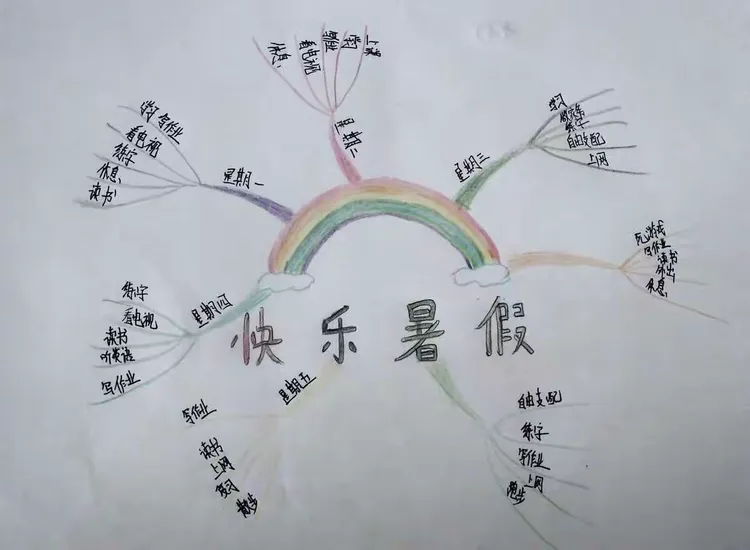 快乐暑假
星期一
学习 写作业
看电视
练字
休息
读书
星期二
休息
看电视
上课
星期三
学习
练字
自由支配
上网
玩游戏
写作业
读书
外出
休息
星期四
练字
看电视
读书
听英语
写作业
星期五
写作业
读书
上网
复习
散步
自由支配
练字
写作业
上网
跑步